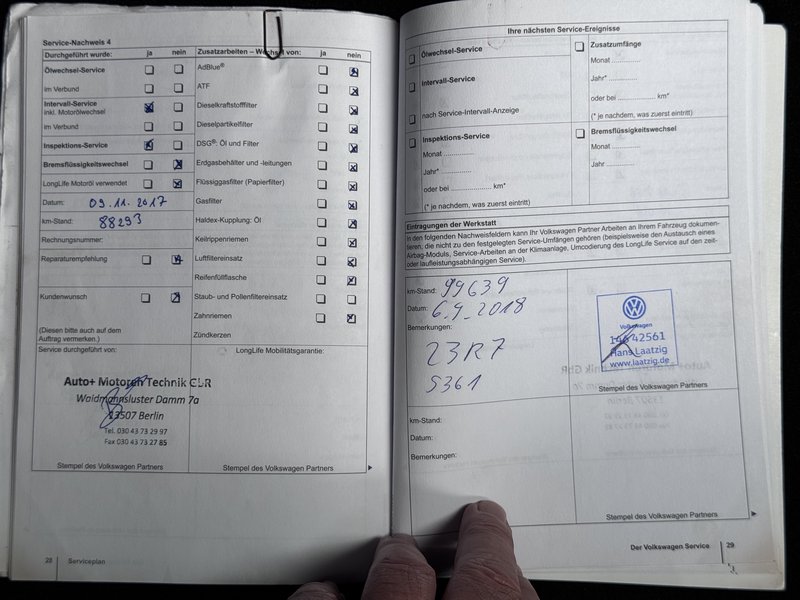 Service-Nachweis 4
Durchgeführt wurde: ja nein
Ölwechsel-Service
im Verbund
Intervall-Service
inkl. Motorölwechsel
im Verbund
Inspektions-Service
Bremsflüssigkeitswechsel
LongLife Motoröl verwendet
Datum: 09.11.2017
km-Stand: 88293
Rechnungsnummer:
Reparaturempfehlung
Kundenwunsch
(Diesen bitte auch auf dem
Auftrag vermerken.)
Zusatzarbeiten – Wechsel von: ja nein
AdBlue®
ATF
Dieselkraftstofffilter
Dieselpartikelfilter
DSG®: Öl und Filter
Erdgasbehälter und -leitungen
Flüssiggasfilter (Papierfilter)
Gasfilter
Haldex-Kupplung: Öl
Keilrippenriemen
Luftfiltereinsatz
Reifenfüllflasche
Staub- und Pollenfiltereinsatz
Zahnriemen
Zündkerzen
Service durchgeführt von:
Auto+ Motoren Technik GbR
Waidmannsluster Damm 7a
13507 Berlin
Tel. 030 43 73 29 97
Fax 030 43 73 27 85
Stempel des Volkswagen Partners
LongLife Mobilitätsgarantie:
Stempel des Volkswagen Partners
28 Serviceplan
Ihre nächsten Service-Ereignisse
Ölwechsel-Service
Intervall-Service
nach Service-Intervall-Anzeige
Inspektions-Service
Monat ............
Jahr* ............
oder bei ............ km*
(* je nachdem, was zuerst eintritt)
Zusatzumfänge
Monat ............
Jahr* ............
oder bei ............ km*
(* je nachdem, was zuerst eintritt)
Bremsflüssigkeitswechsel
Monat ............
Jahr ............
Eintragungen der Werkstatt
In den folgenden Nachweisfeldern kann Ihr Volkswagen Partner Arbeiten an Ihrem Fahrzeug dokumen-
tieren, die nicht zu den festgelegten Service-Umfängen gehören (beispielsweise den Austausch eines
Airbag-Moduls, Service-Arbeiten an der Klimaanlage, Umcodierung des LongLife Service auf den zeit-
oder laufleistungsabhängigen Service).
km-Stand: 99639
Datum: 6.9.2018
Bemerkungen:
23R7
S361
Volkswagen
42561
Hans Laatzig
www.laatzig.de
Stempel des Volkswagen Partners
km-Stand:
Datum:
Bemerkungen:
Stempel des Volkswagen Partners
Der Volkswagen Service 29